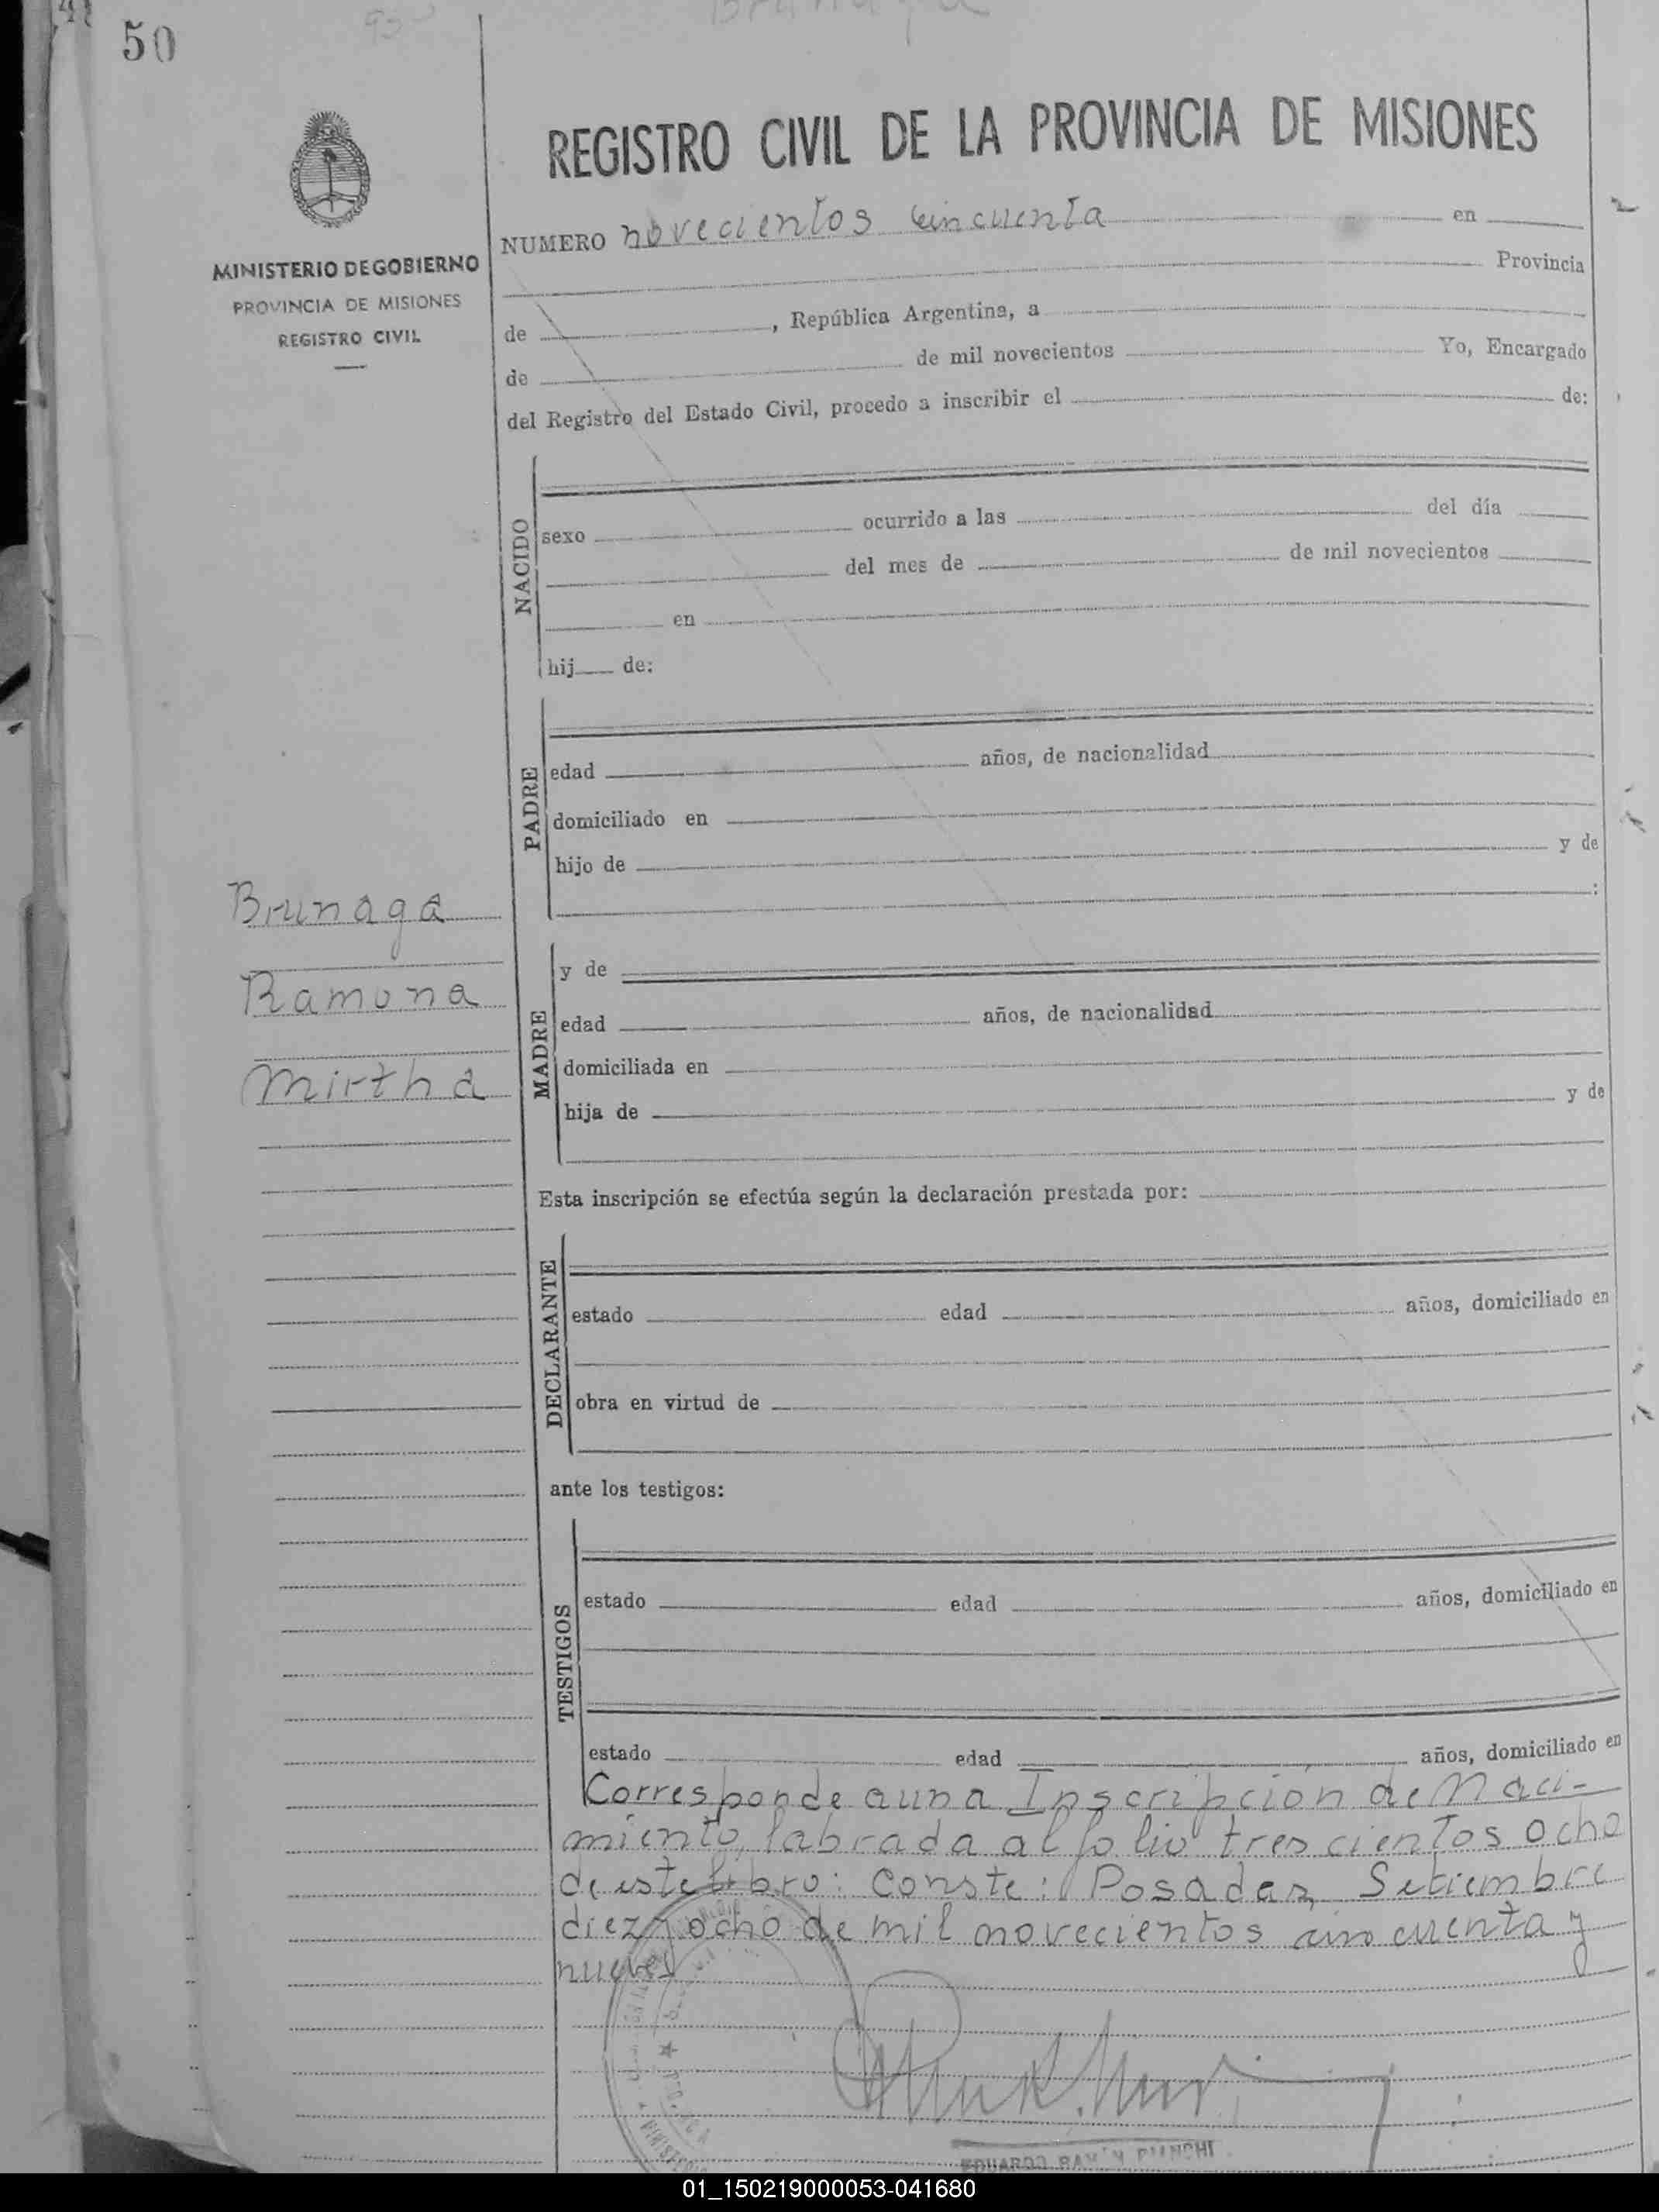 50
REGISTRO CIVIL DE LA PROVINCIA DE MISIONES
MINISTERIO DE GOBIERNO
PROVINCIA DE MISIONES
REGISTRO CIVIL
NUMERO novecientos cincuenta en
Provincia
de , República Argentina, a
de de mil novecientos Yo, Encargado
del Registro del Estado Civil, procedo a inscribir el de:
NACIDO
sexo ocurrido a las del día
del mes de de mil novecientos
en
hij de:
PADRE
edad años, de nacionalidad
domiciliado en
hijo de y de
:
Brunaga
Ramona
Mirtha
MADRE
y de
edad años, de nacionalidad
domiciliada en
hija de y de
Esta inscripción se efectúa según la declaración prestada por:
DECLARANTE
estado edad años, domiciliado en
obra en virtud de
ante los testigos:
TESTIGOS
estado edad años, domiciliado en
estado edad años, domiciliado en
Corresponde a una Inscripción de Naci-
miento, labrada al folio trescientos ocho
de este libro: Conste: Posadas, Setiembre
diez y ocho de mil novecientos cincuenta y
nueve
EDUARDO RAMÓN BIANCHI
01_150219000053-041680